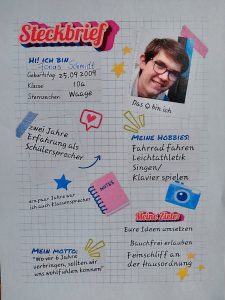 Steckbrief
Hi! ICH BIN ...
Jonas Schmitt
Geburtstag: 25.09.2009
Klasse 10a
Sternzeichen: Waage
Das bin ich
zwei Jahre
Erfahrung als
Schülersprecher
Meine Hobbies:
Fahrrad fahren
Leichtathletik
Singen/
Klavier spielen
ein paar Jahre war
ich auch Klassensprecher
NOTES
Meine Ziele:
Eure Ideen umsetzen
Bauchfrei erlauben
Feinschliff an
der Hausordnung
Mein Motto:
"Wo wir 6 Jahre
verbringen, sollten wir
uns wohlfühlen können"